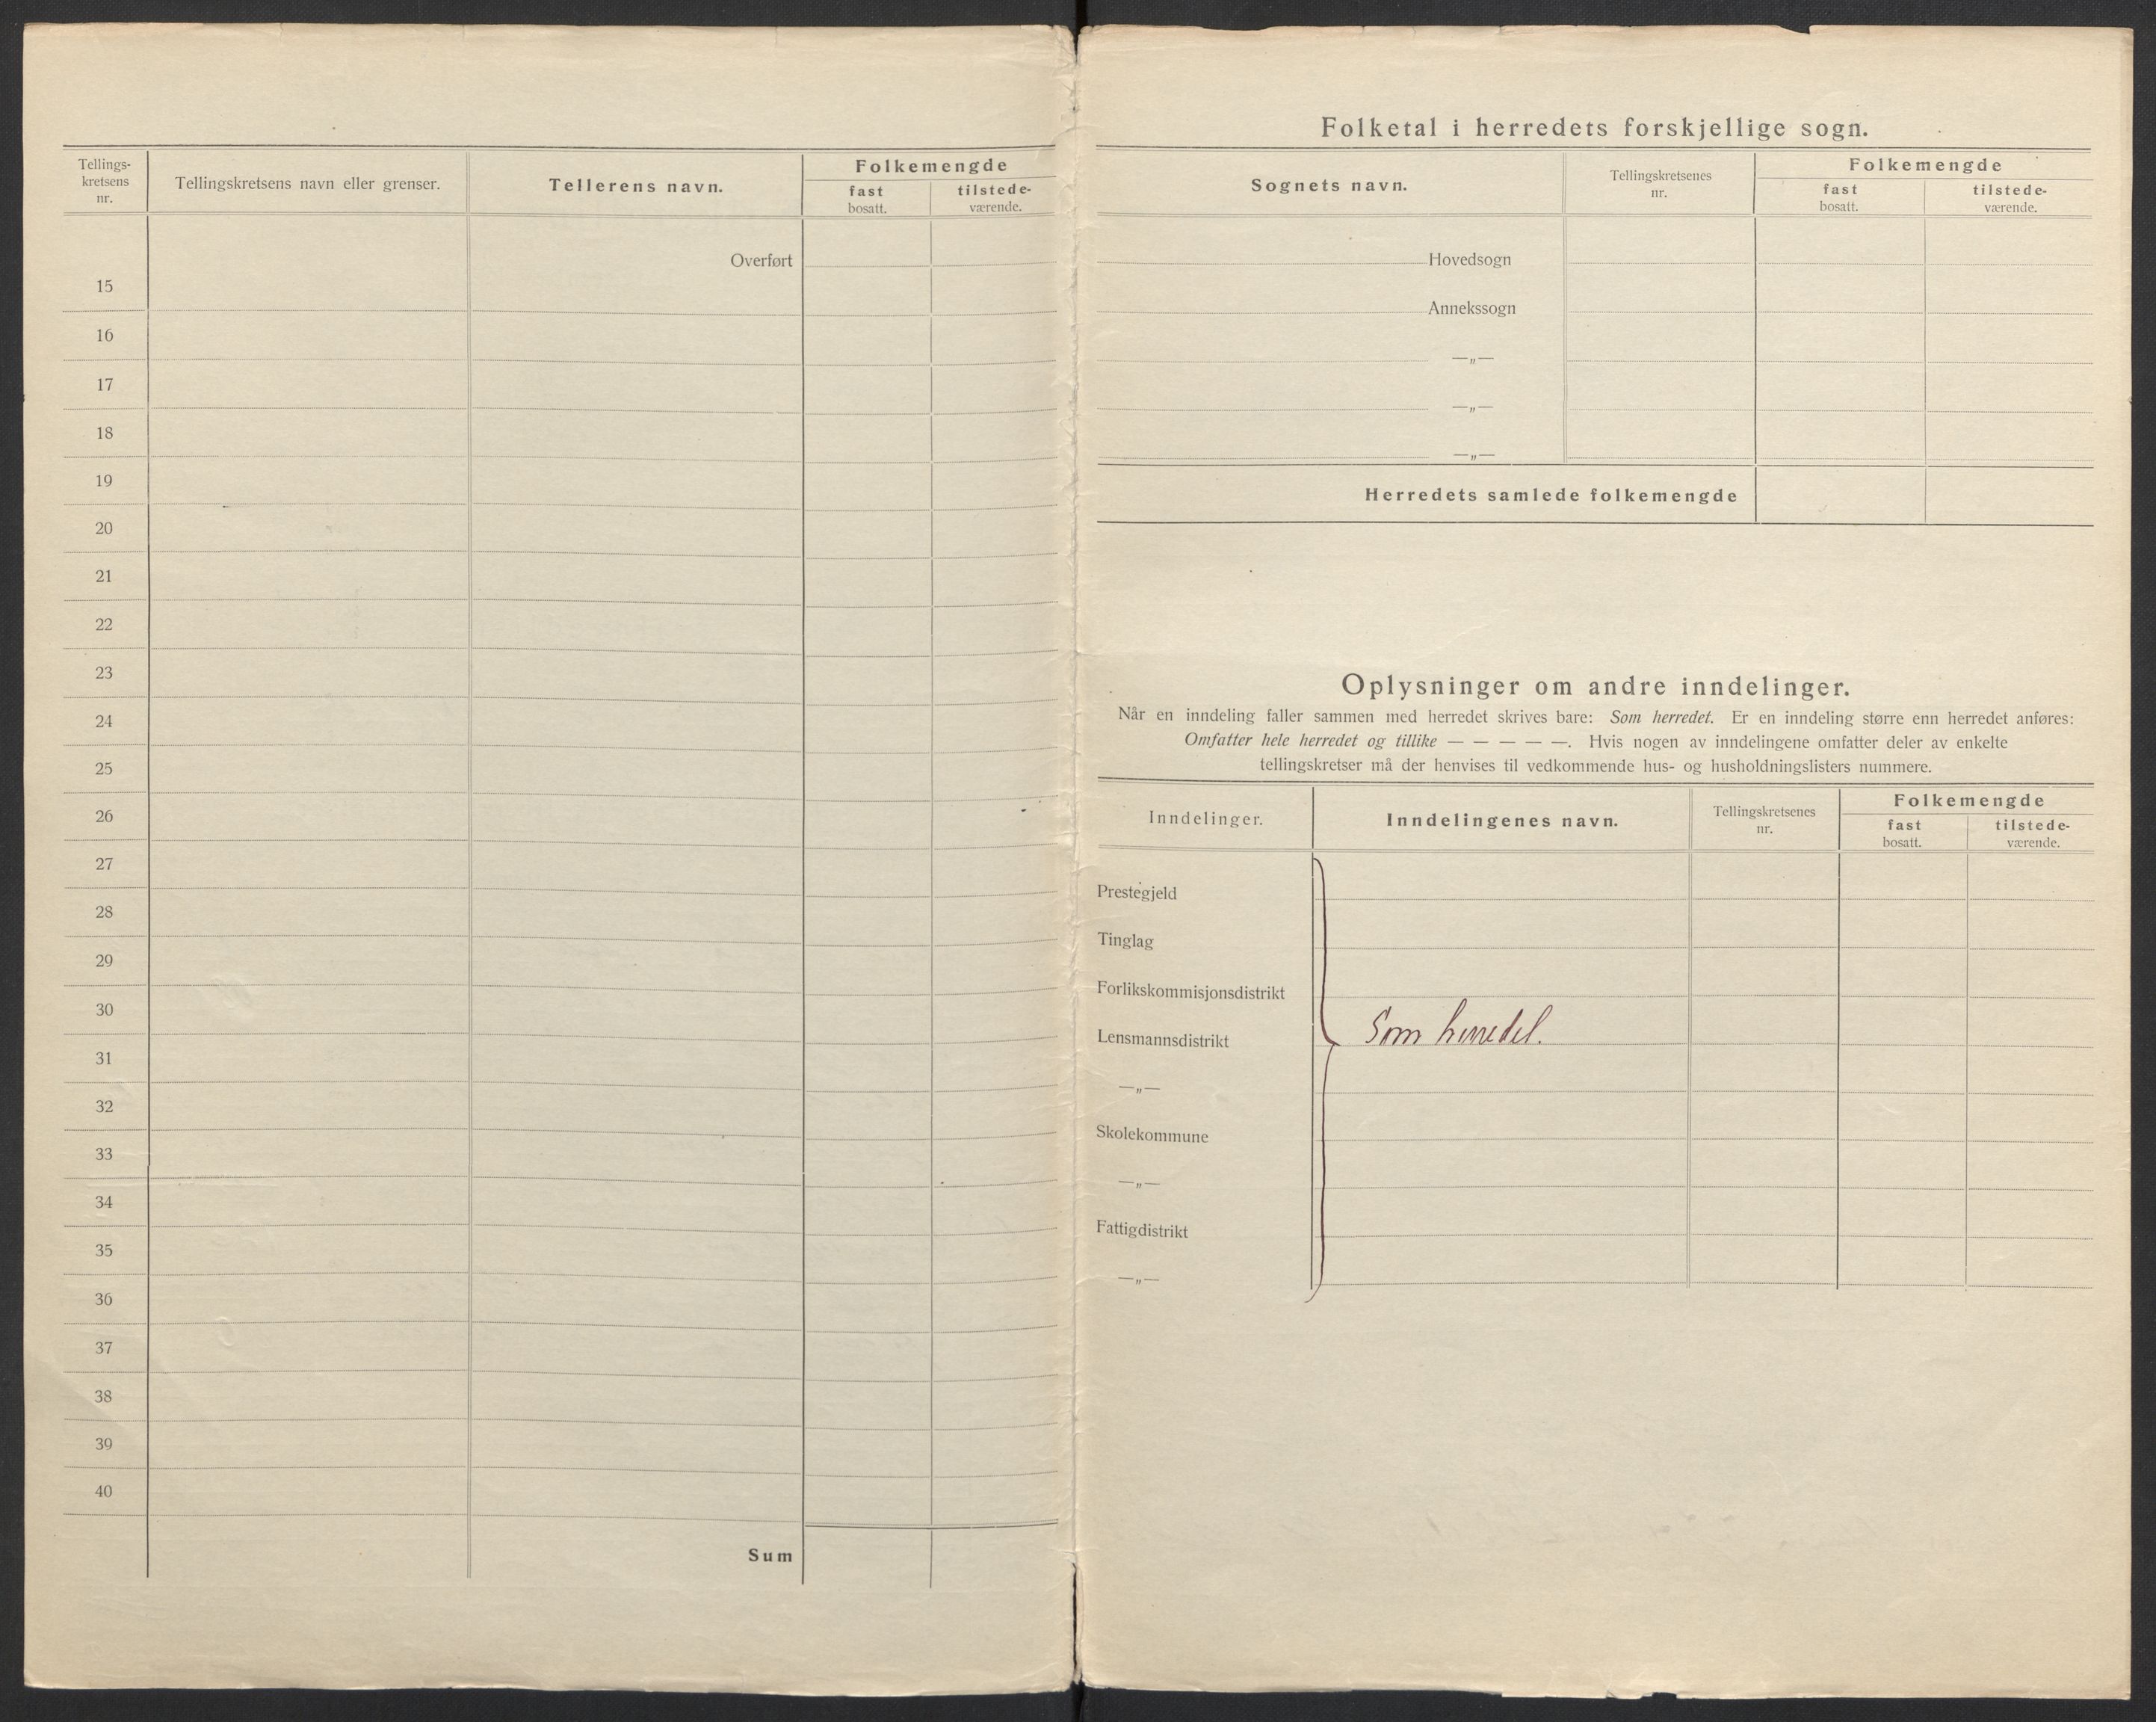 Tellings-
kretsens
nr.
Tellingskretsens navn eller grenser.
Tellerens navn.
Folkemengde
fast
bosatt.
tilstede-
værende.
Overført
15
16
17
18
19
20
21
22
23
24
25
26
27
28
29
30
31
32
33
34
35
36
37
38
39
40
Sum
Folketal i herredets forskjellige sogn.
Sognets navn.
Tellingskretsenes
nr.
Folkemengde
fast
bosatt.
tilstede-
værende.
Hovedsogn
Annekssogn
—„—
—„—
—„—
Herredets samlede folkemengde
Oplysninger om andre inndelinger.
Når en inndeling faller sammen med herredet skrives bare: Som herredet. Er en inndeling større enn herredet anføres:
Omfatter hele herredet og tillike — — — — —. Hvis nogen av inndelingene omfatter deler av enkelte
tellingskretser må der henvises til vedkommende hus- og husholdningslisters nummere.
Inndelinger.
Inndelingenes navn.
Tellingskretsenes
nr.
Folkemengde
fast
bosatt.
tilstede-
værende.
Prestegjeld
Tinglag
Forlikskommisjonsdistrikt
Lensmannsdistrikt
Som herredet.
—„—
Skolekommune
—„—
Fattigdistrikt
—„—